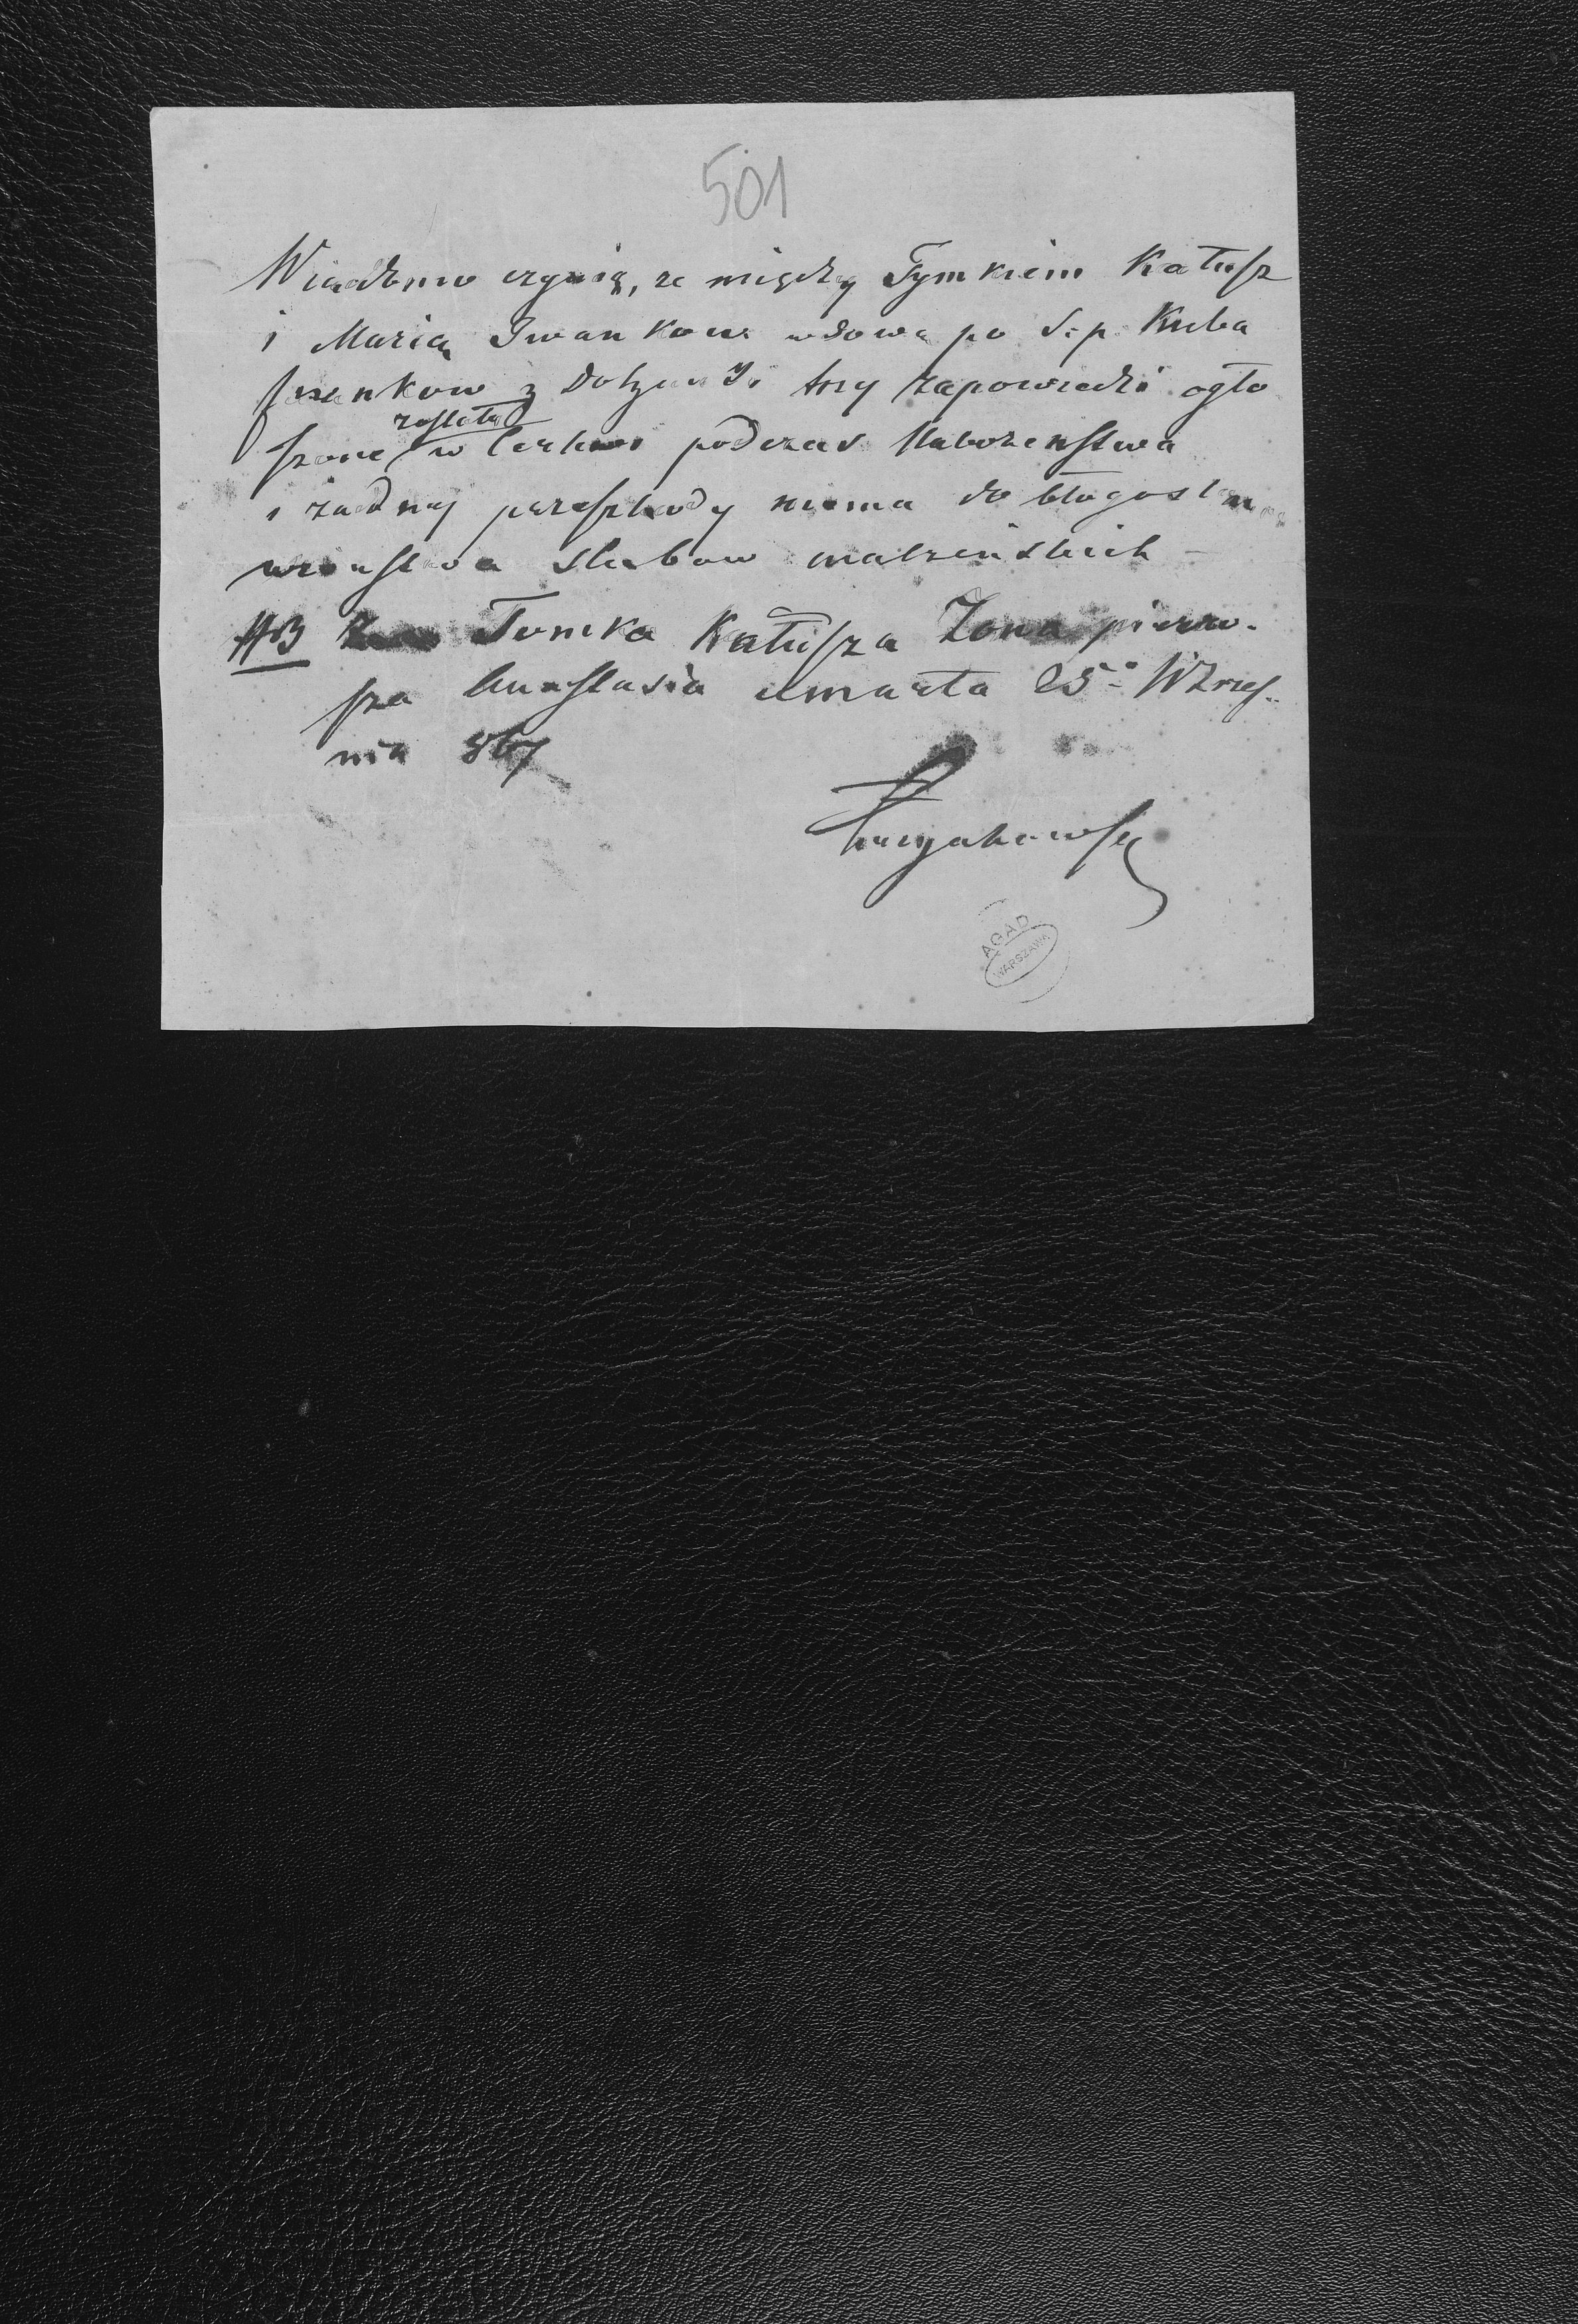 501
Wiadomo czynię, ze między Tymkiem Kałusz
i Marią Iwankow wdowa po S. p. Kuba
Iwankow z trzy zapowiedzi ogło
zostały
szone w Cerkwi podczas Nabozenstwa
i zadnej przeszkody niema do błogosła
wienstwa slubow malzenskich –
NB Tomka Kałusza Zona pierw-
sza Anastasia umarła 25o Wrzes-
nia 867
AGAD
WARSZAWA